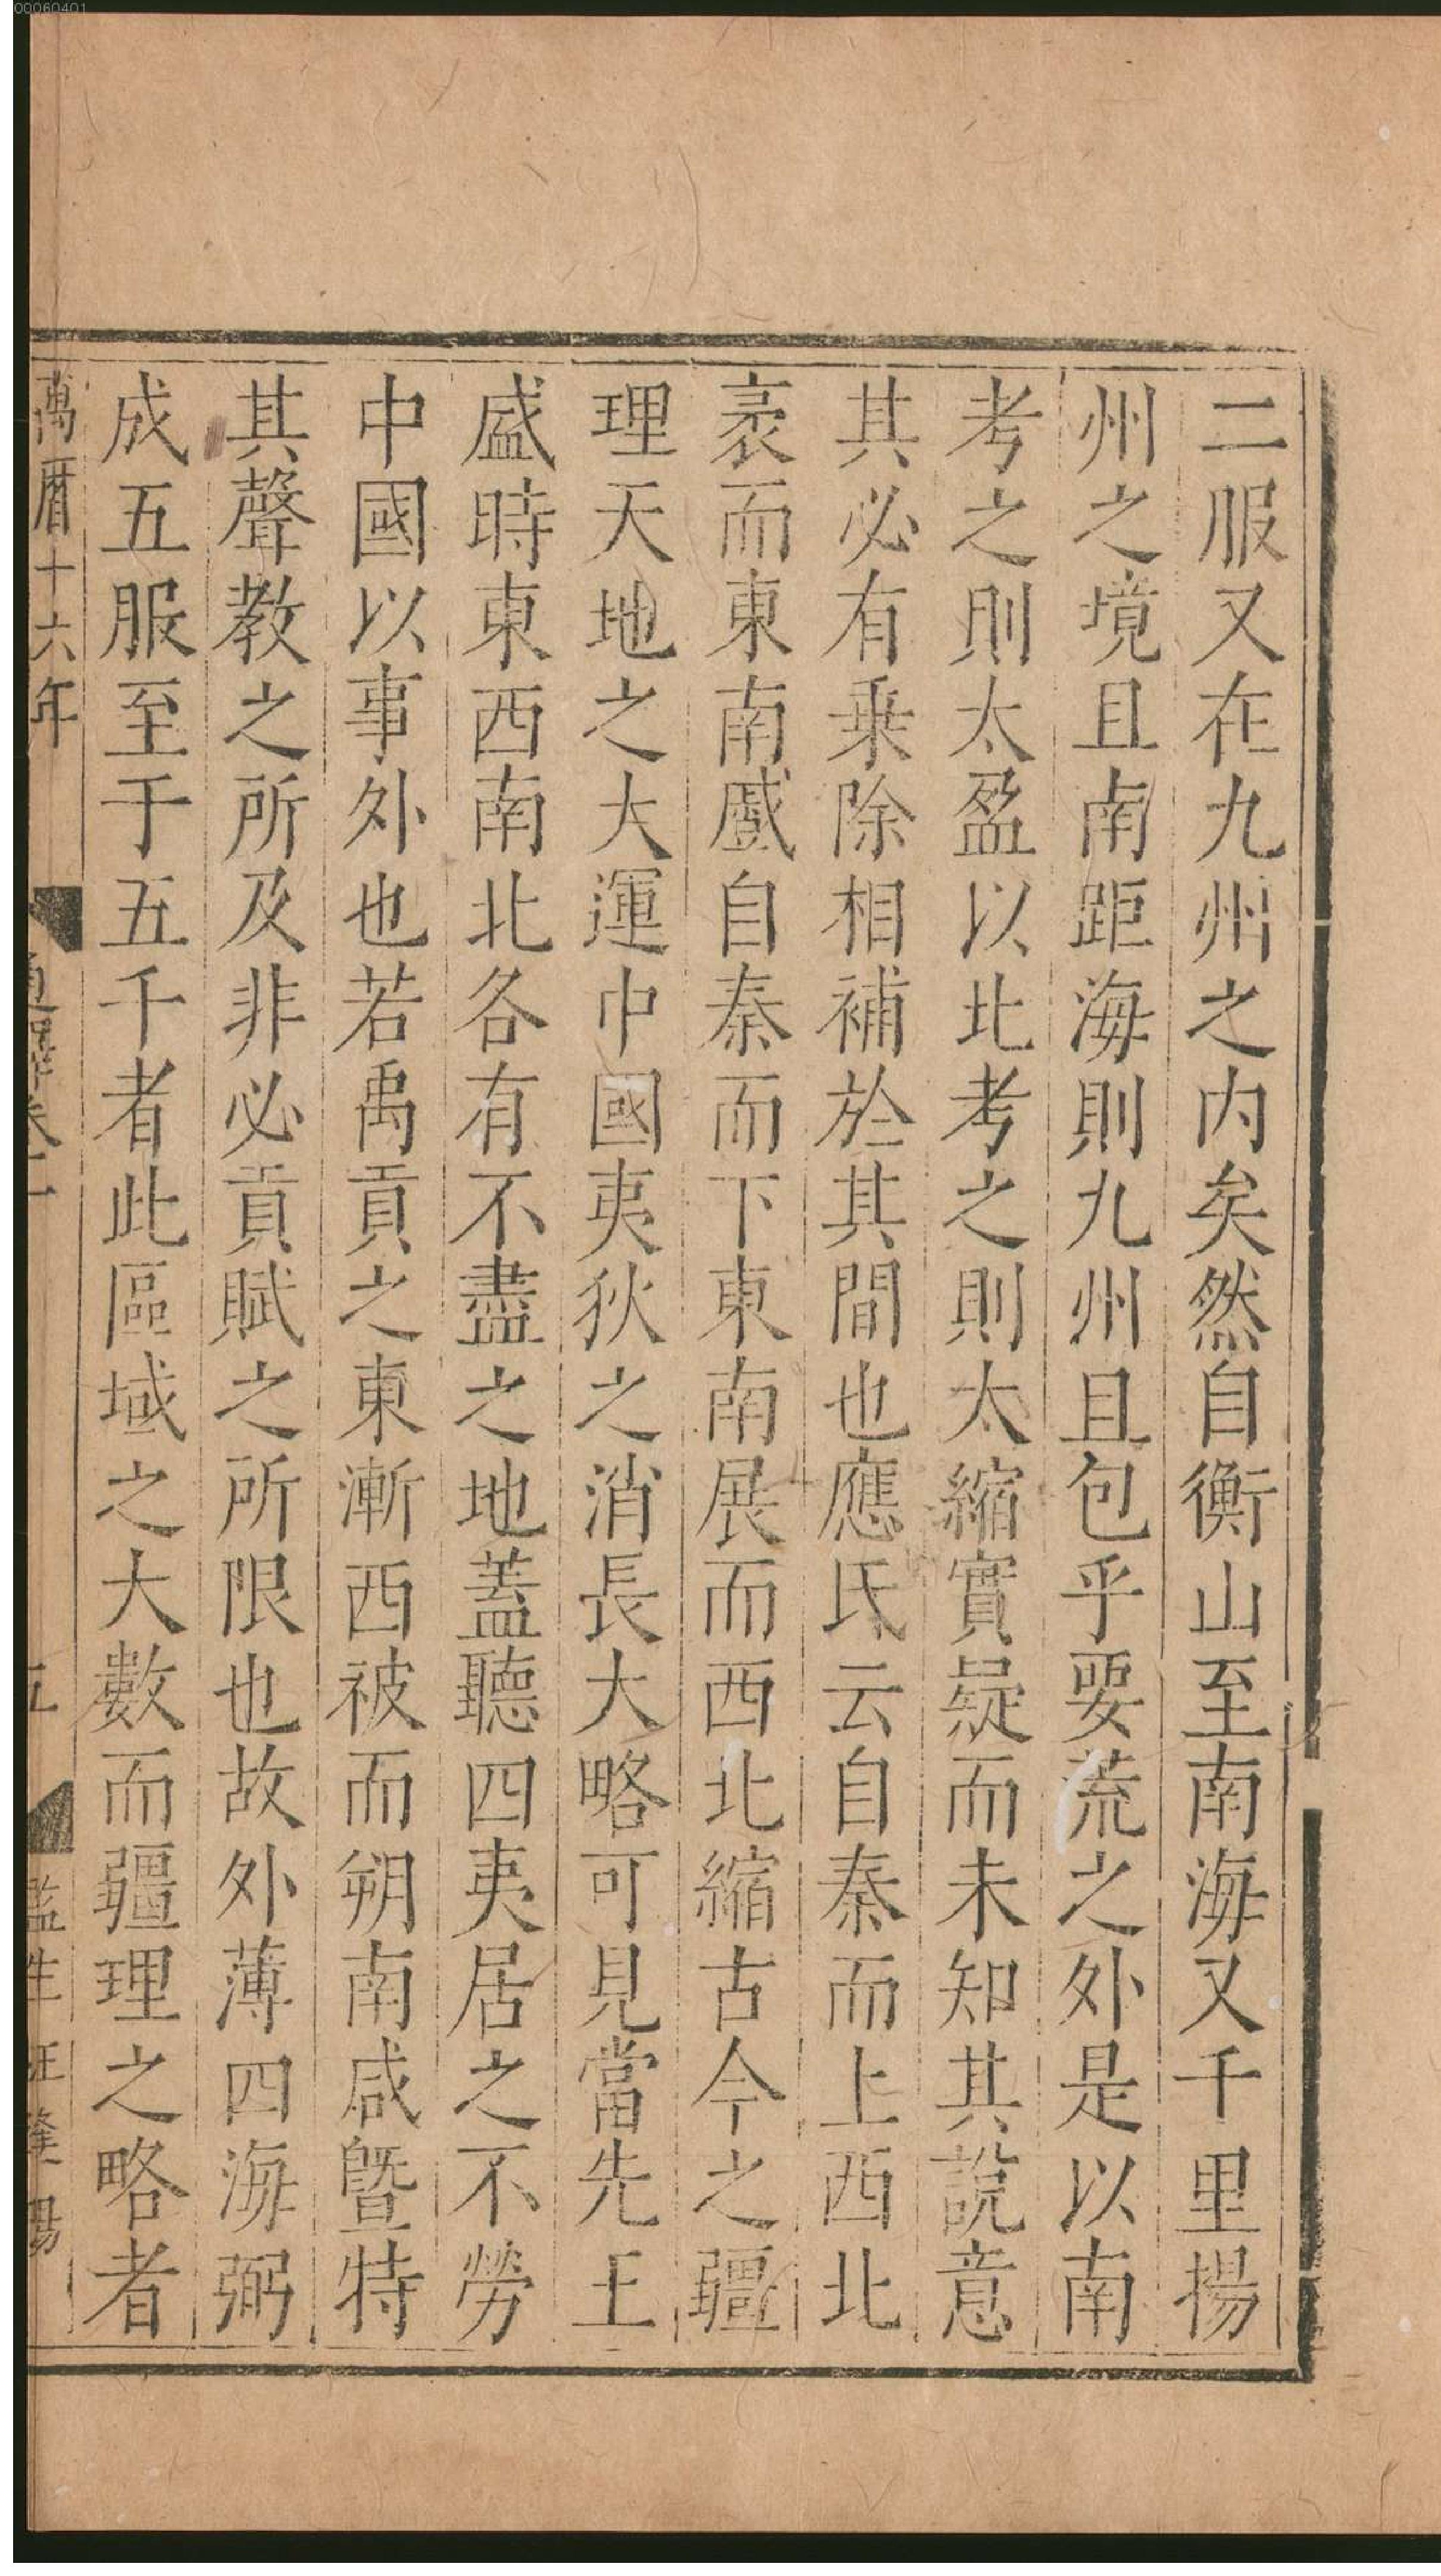 00060401
二服又在九州之内矣然自衡山至南海又千里揚
州之境且南距海則九州且包乎要荒之外是以南
考之則太盈以北考之則太縮實疑而未知其說意
其必有乗除相補於其間也應氏云自秦而上西北
袤而東南蹙自秦而下東南展而西北縮古今之疆
理天地之大運中國夷狄之消長大略可見當先王
盛時東西南北各有不盡之地蓋聽四夷居之不勞
中國以事外也若禹貢之東漸西被而朔南咸曁特
其聲教之所及非必貢賦之所限也故外薄四海弼
成五服至于五千者此區域之大數而疆理之略者
萬曆十六年 通釋卷二 五 監生汪逢陽